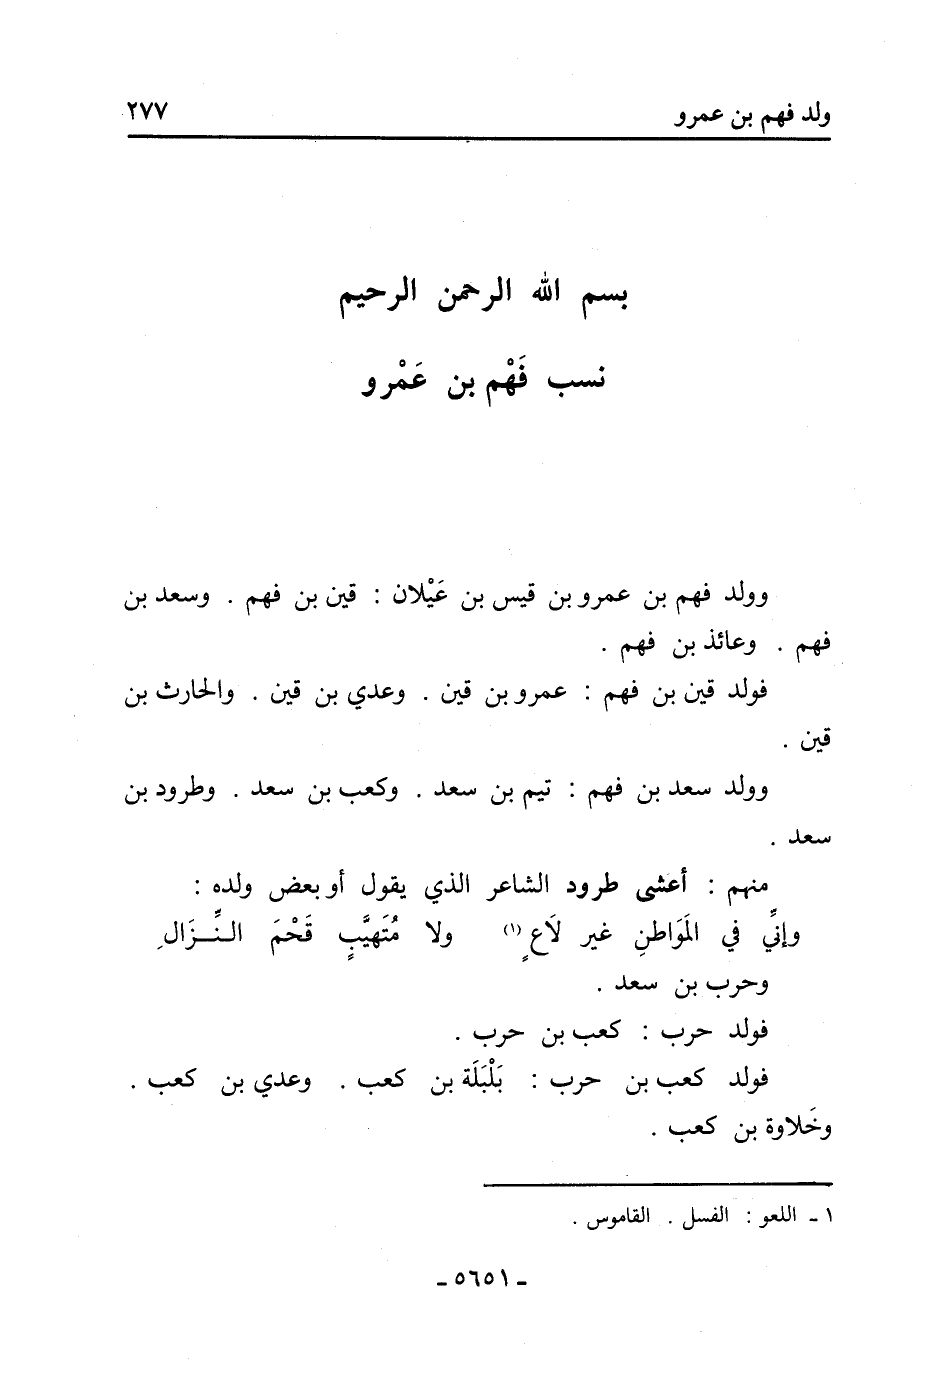 ولد فهم بن عمرو ٢٧٧
بسم الله الرحمن الرحيم
نسب فَهْم بن عَمْرو
وولد فهم بن عمرو بن قيس بن عَيْلان : قين بن فهم . وسعد بن
فهم . وعائذ بن فهم .
فولد قين بن فهم : عمرو بن قين . وعدي بن قين . والحارث بن
قين .
وولد سعد بن فهم : تيم بن سعد . وكعب بن سعد . وطرود بن
سعد .
منهم : أعشى طرود الشاعر الذي يقول أو بعض ولده :
وإنِّي في المَوَاطنِ غير لَاعٍ (١) ولا مُتَهيَّبٍ قَحْمَ النِّزَالِ
وحرب بن سعد .
فولد حرب : كعب بن حرب .
فولد كعب بن حرب : بَلْبَلَة بن كعب . وعدي بن كعب .
وخَلاوة بن كعب .
١ ـ اللعو : الفسل . القاموس .
ـ ٥٦٥١ ـ